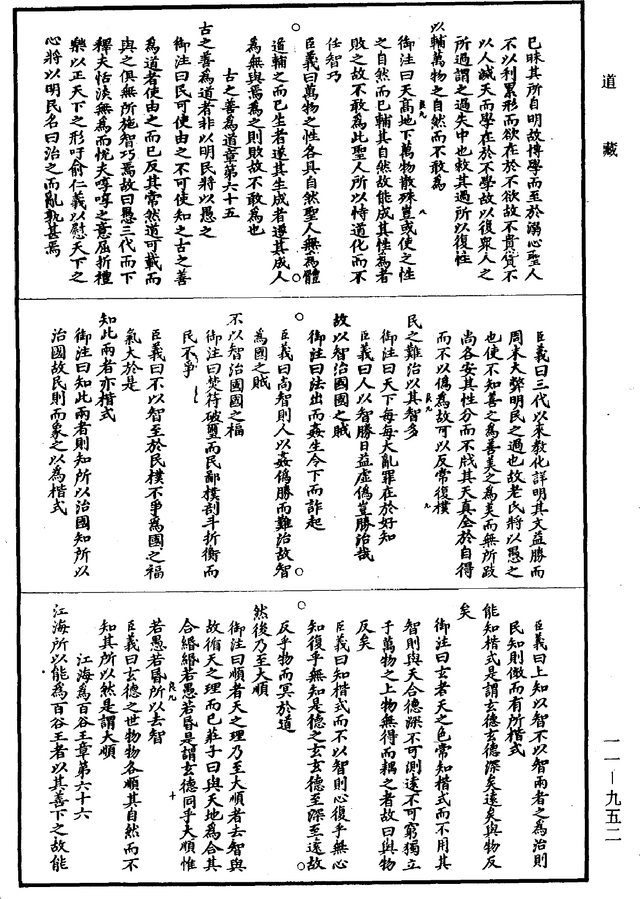 道藏
已昧其所自明故博學而至於溺心聖人
不以利累形而欲在於不欲故不貴貨不
以人滅天而學在於不學故以復衆人之
所過謂之過失中也救其過所以復性
以輔萬物之自然而不敢為
御注曰天高地下萬物散殊豈或使之性
良九 八
之自然而已輔其自然故能成其性為者
敗之故不敢為此聖人所以恃道化而不
任智巧
臣義曰萬物之性各具自然聖人無為體
道輔之而已生者遂其生成者遵其成人
為無與焉為之則敗故不敢為也
古之善為道章第六十五
古之善為道者非以明民將以愚之
御注曰民可使由之不可使知之古之善
為道者使由之而已反其常然道可載而
與之俱無所施智巧焉故曰愚三代而下
釋夫恬淡無為而悅夫啍啍之意屈折禮
樂以正天下之形吁俞仁義以慰天下之
心將以明民名曰治之而亂孰甚焉
臣義曰三代以來敎化詳明其文益勝而
周末大弊明民之過也故老氏將以愚之
也使不知善之為善美之為美而無所跂
尚各安其性分而不戕其天真全於自得
而不以僞為故可以反常復樸
良九 九
民之難治以其智多
御注曰天下每每大亂罪在於好知
臣義曰人以智勝日益虛僞豈勝治哉
故以智治國國之賊
御注曰法出而姦生令下而詐起
臣義曰尚智則人以姦僞勝而難治故智
為國之賊
不以智治國國之福
御注曰焚符破璽而民鄙樸剖斗折衡而
民不爭
臣義曰不以智至於民樸不爭為國之福
氣大於是
知此兩者亦楷式
御注曰知此兩者則知所以治國知所以
治國故民則而象之以為楷式
臣義曰上知以智不以智兩者之為治則
民知則傚而有所楷式
能知楷式是謂玄德玄德深矣遠矣與物反
矣
御注曰玄者天之色常知楷式而不用其
智則與天合德深不可測遠不可窮獨立
于萬物之上物無得而耦之者故曰與物
反矣
臣義曰知楷式而不以智則心復乎無心
知復乎無知是德之玄玄德至深至遠故
反乎物而冥於道
然後乃至大順
御注曰順者天之理乃至大順者去智與
故循天之理而已莊子曰與天地為合其
合緡緡若愚若昏是謂玄德同乎大順惟
良九 十
若愚若昏所以去智
臣義曰玄德之世物物各順其自然而不
知其所以然是謂大順
江海為百谷王章第六十六
江海所以能為百谷王者以其善下之故能
一一—九五二